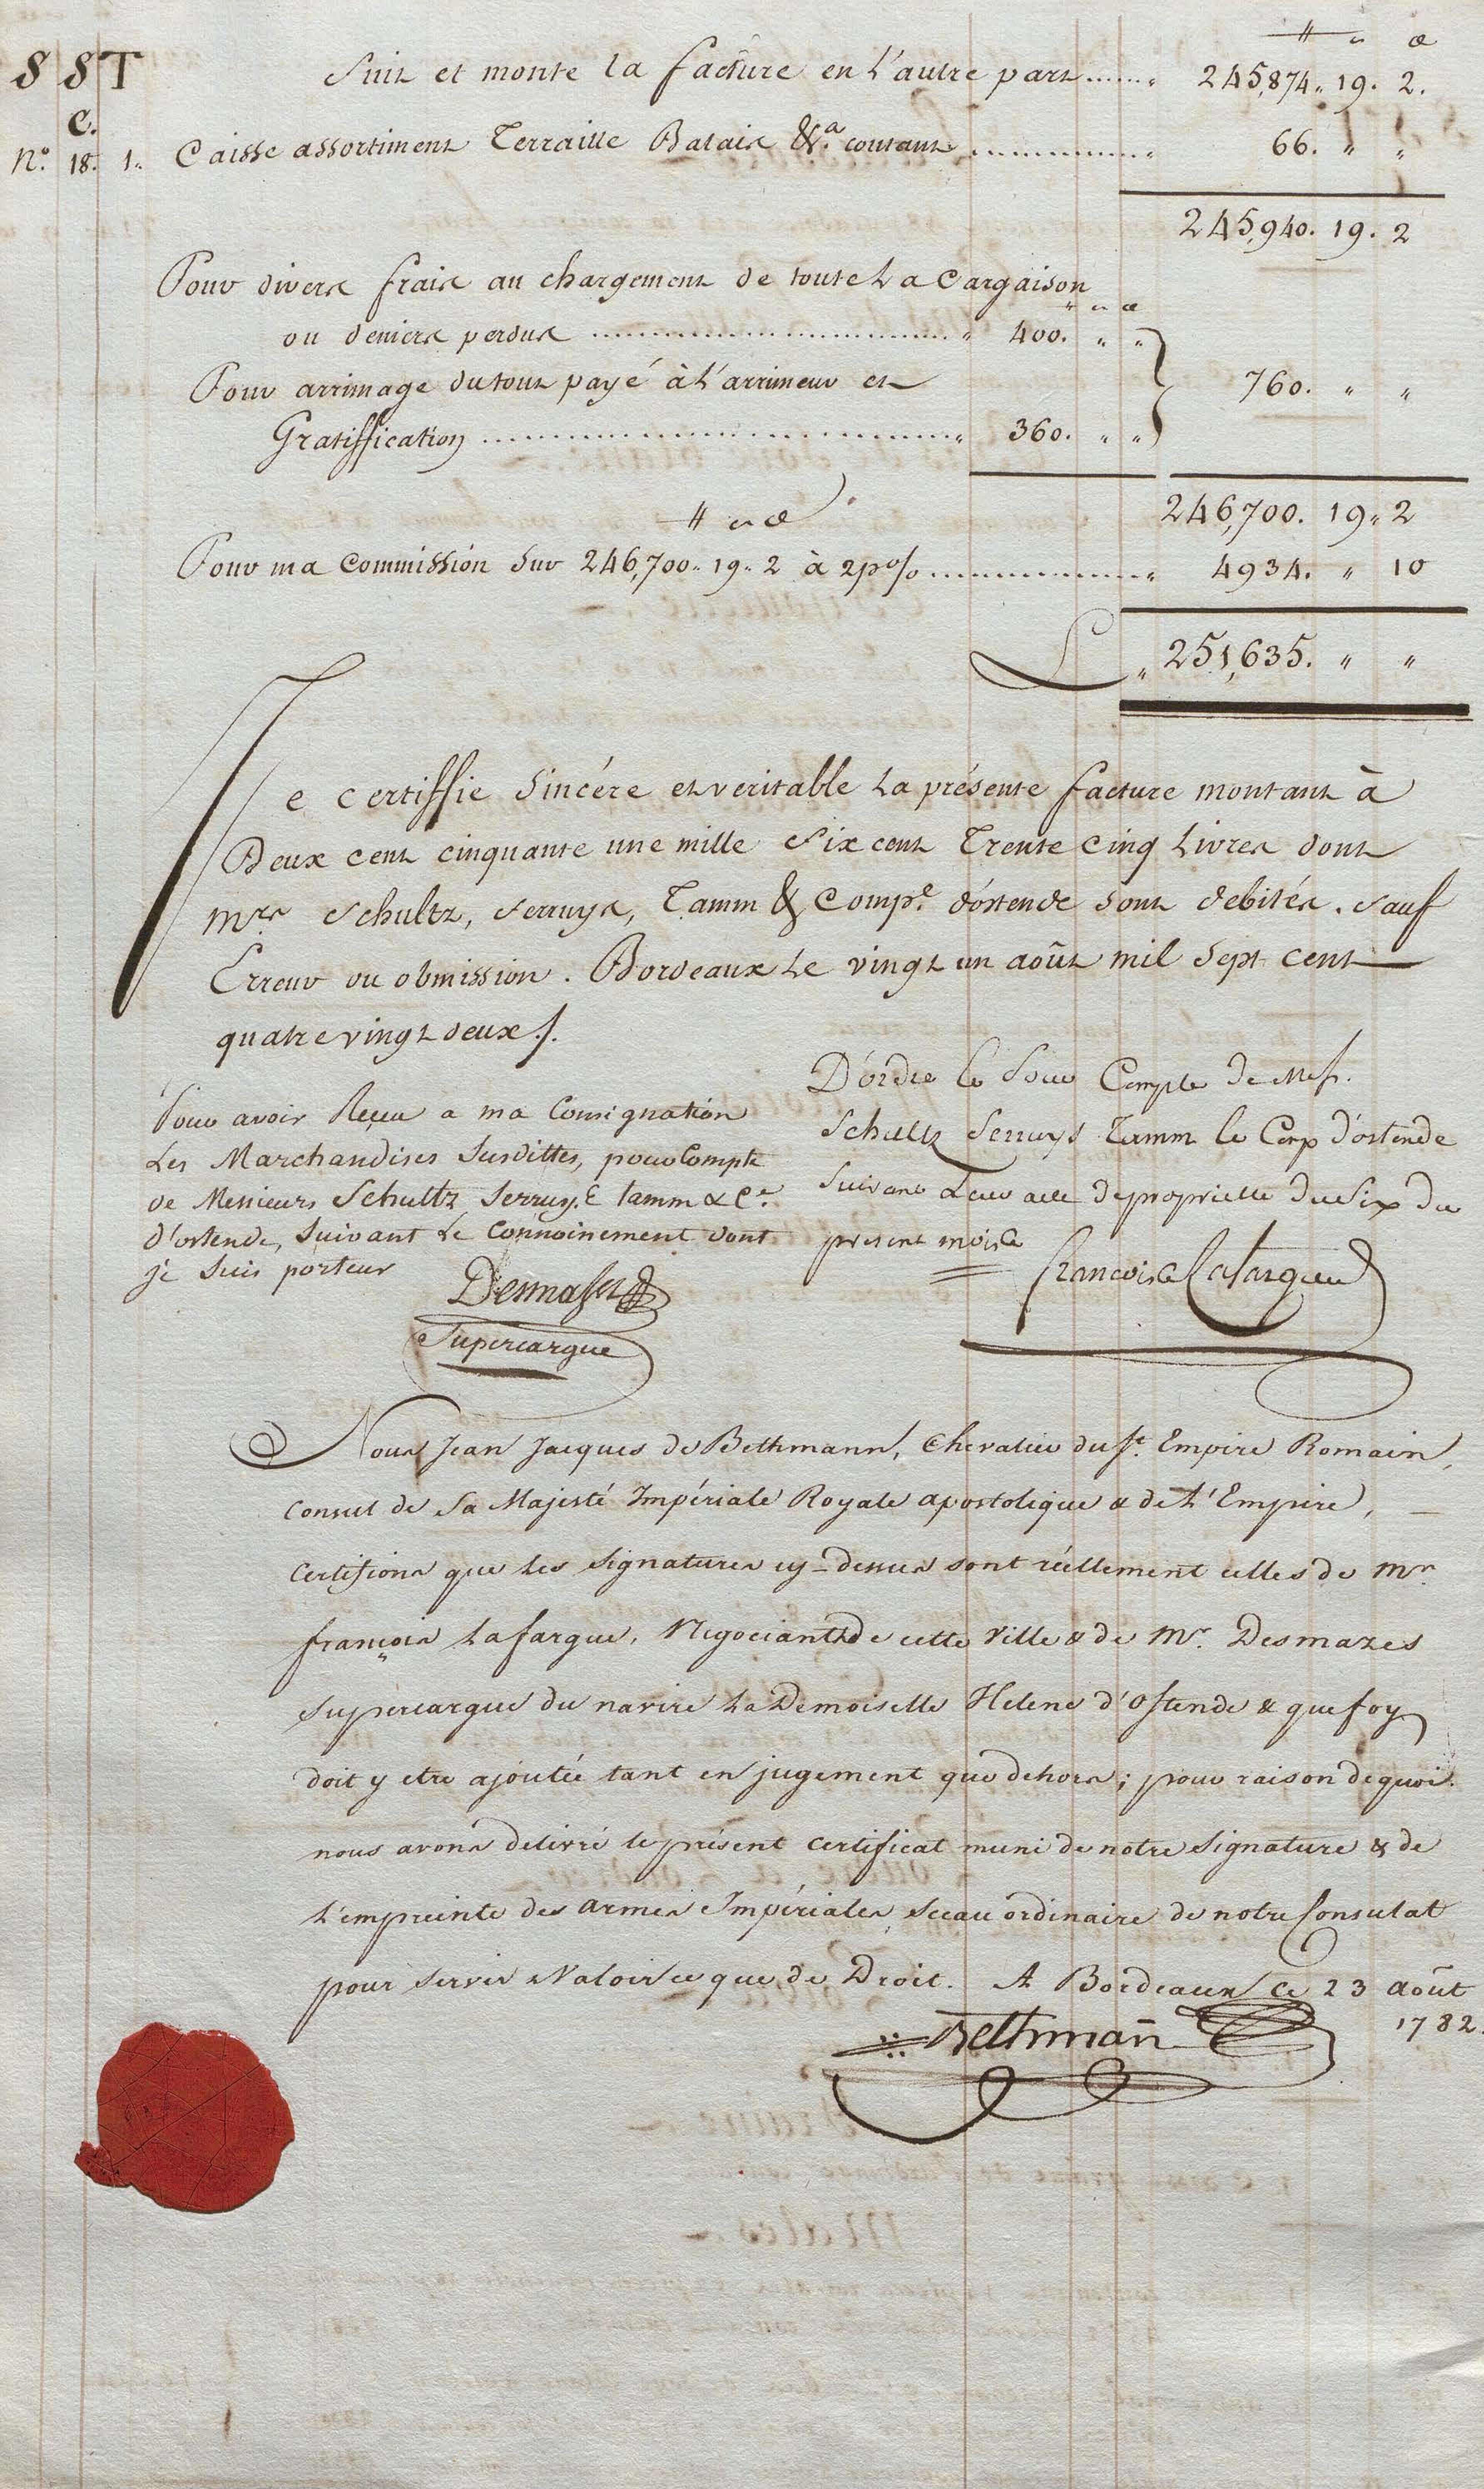 ₶ s d
S S T Suit et monte la facture en l'autre part ...... " 245,874. 19. 2.
C.
N.° 18. 1. Caisse assortiment Terraille Balais &.a coutant ............ " 66. " "
245,940. 19. 2
Pour divers frais au chargement de toute La Cargaison
₶ s d
ou deniers perdus .............................. " 400. " "
Pour arrimage du tout payé à L'arrimeur et 760. " "
Gratiffication .............................. " 360. " "
246,700. 19. 2
₶ s d
Pour ma Commission Sur 246,700. 19. 2 à 2 p% ............ " 4934. " 10
L " 251,635. " "
Je certiffie Sincére et veritable La présente facture montant à
Deux cent cinquante une mille Six cent Trente cinq Livres dont
Mrs Schultz, Serruys, Tamm & Comp.e d'ostende sont debités. Sauf
Erreur ou obmission. Bordeaux Le vingt un août mil Sept cent
quatre vingt deux ./.
Pour avoir Reçeu a ma Consignation
Les Marchandises Susdittes, pour Compte
de Messieurs Schultz Serruys & tamm & C.e
d'ostende, Suivant Le Connoinement dont
je Suis porteur
Desmases
Supercargue
D'ordre & Pour Compte de Mess.
Schultz Serruys Tamm & Comp d'ostende
Suivant Leur acte de proprietté du Six du
present mois
françois Lafargue
Nous Jean Jacques de Bethmann, Chevalier du S.t Empire Romain,
Consul de Sa Majesté Impériale Royale apostolique & de L'Empire,
Certifions que les Signatures cy-dessus sont réellement celles de Mr.
françois Lafargue, Négociant de cette Ville & de Mr. Desmazes
Supercargue du navire La Demoiselle Helene d'Ostende & que foy
doit y etre ajoutée tant en jugement que dehors; pour raison de quoi
nous avons délivré le présent Certificat muni de notre Signature & de
L'empreinte des armes Impériales, Sceau ordinaire de notre Consulat
pour Servir & Valoir ce que de Droit. A Bordeaux ce 23 août
1782.
Bethmañ